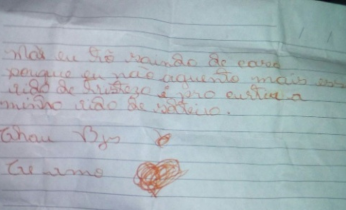 Mãe eu tô saindo de casa
porque eu não aguento mais essa
vida de tristeza é pro curtir a
minha vida de
Tchau Bjs
Te amo